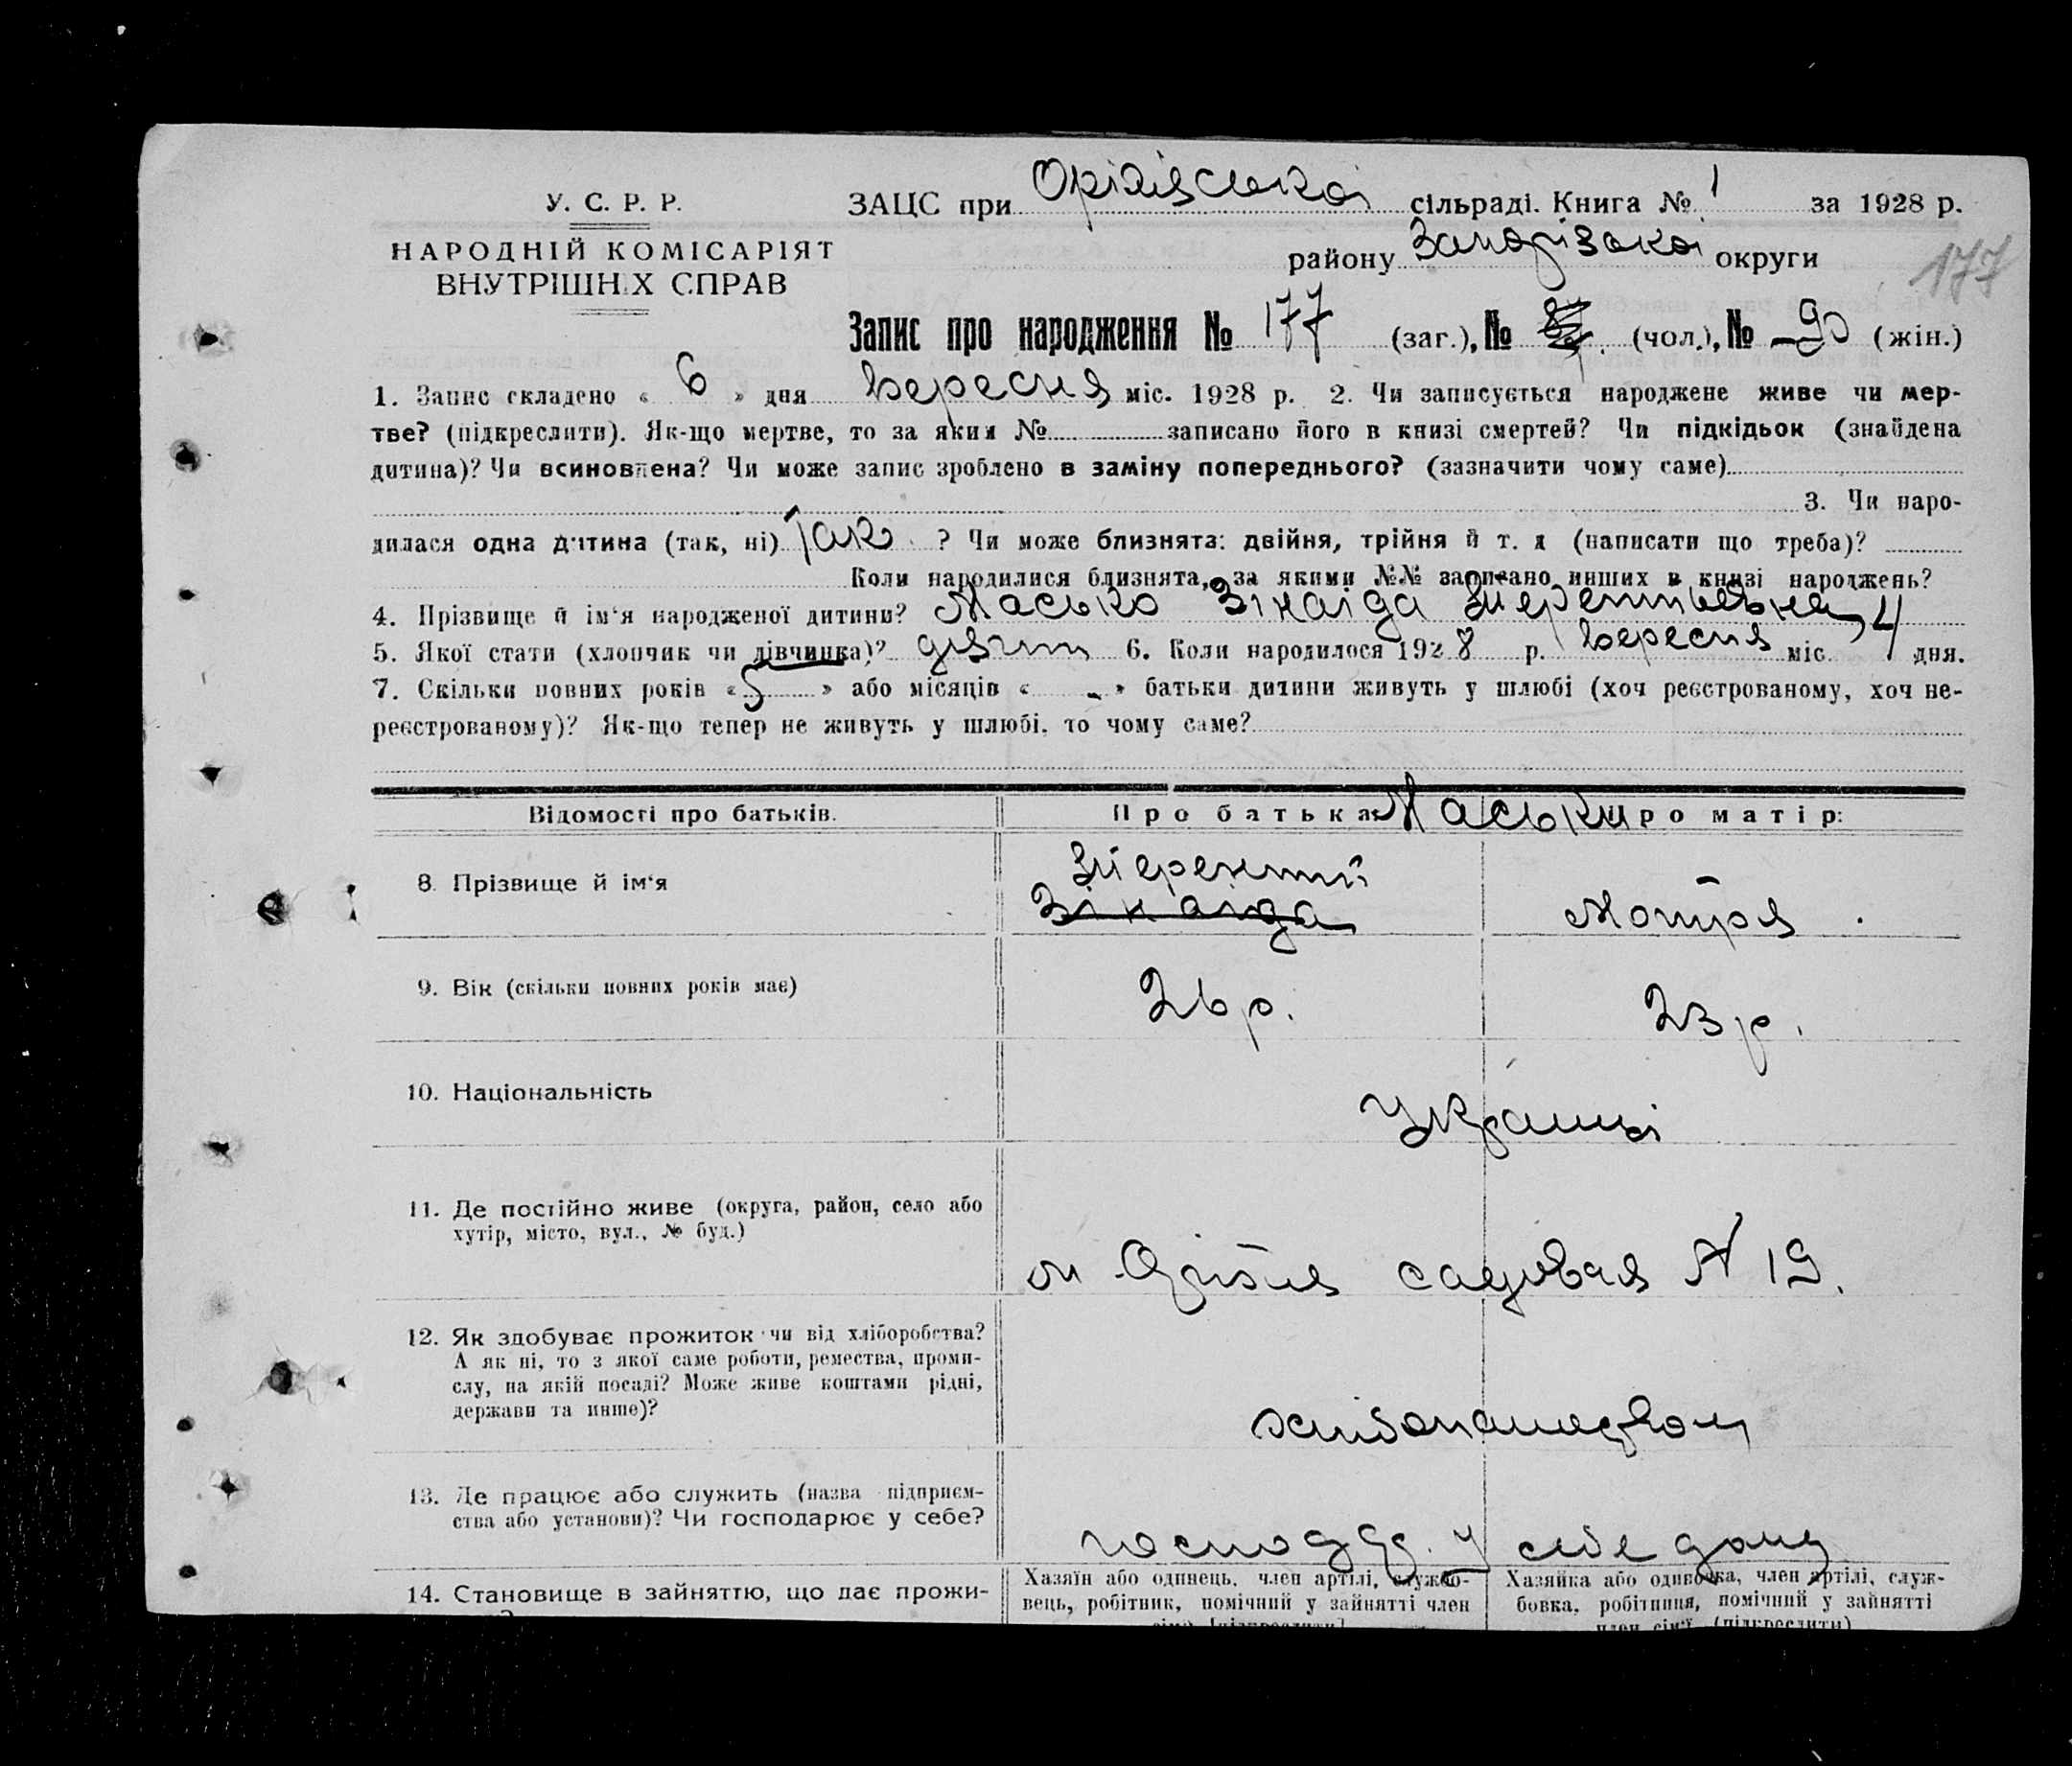 У. С. Р. Р.
НАРОДНІЙ КОМІСАРІЯТ
ВНУТРІШНІХ СПРАВ
ЗАЦС при Оріхівській сільраді. Книга № 1 за 1928 р.
району Запорізької округи
177
Запис про народження № 177 (заг.), № (чол.), № 90 (жін.)
1. Запис складено « 6 » дня вересня міс. 1928 р. 2. Чи записується народжене живе чи мер-
тве? (підкреслити). Як-що мертве, то за яким № записано його в книзі смертей? Чи підкідьок (знайдена
дитина)? Чи всиновлена? Чи може запис зроблено в заміну попереднього? (зазначити чому саме)
3. Чи наро-
дилася одна дитина (так, ні) так ? Чи може близнята: двійня, трійня й т. д (написати що треба)?
Коли народилися близнята, за якими №№ записано инших в книзі народжень?
4. Прізвище й ім'я народженої дитини? Масько Зінаіда Терентьевна
5. Якої стати (хлопчик чи дівчинка)? 6. Коли народилося 1928 р. вересня міс. 4 дня.
7. Скільки повних років « 5 » або місяців « - » батьки дитини живуть у шлюбі (хоч реєстрованому, хоч не-
реєстрованому)? Як-що тепер не живуть у шлюбі, то чому саме?
Відомості про батьків.
Про батька:
Маськи
Про матір:
8. Прізвище й ім'я
Терентий
Зінаіда
Мотря
9. Вік (скільки повних років має)
26 р.
23 р.
10. Національність
Українці
11. Де постійно живе (округа, район, село або
хутір, місто, вул., № буд.)
м Оріхів садовая № 19.
12. Як здобуває прожиток чи від хліборобства?
А як ні, то з якої саме роботи, ремества, проми-
слу, на якій посаді? Може живе коштами рідні,
держави та инше)?
хлібопашеством
13. Де працює або служить (назва підприєм-
ства або установи)? Чи господарює у себе?
господар. у себе дому
14. Становище в зайняттю, що дає прожи-
Хазяїн або одинець, член артілі, службо-
вець, робітник, помічний у зайнятті член
сімї [підкреслити]
Хазяйка або одиночка, член артілі, служ-
бовка, робітниця, помічний у зайнятті
член сім'ї (підкреслити)